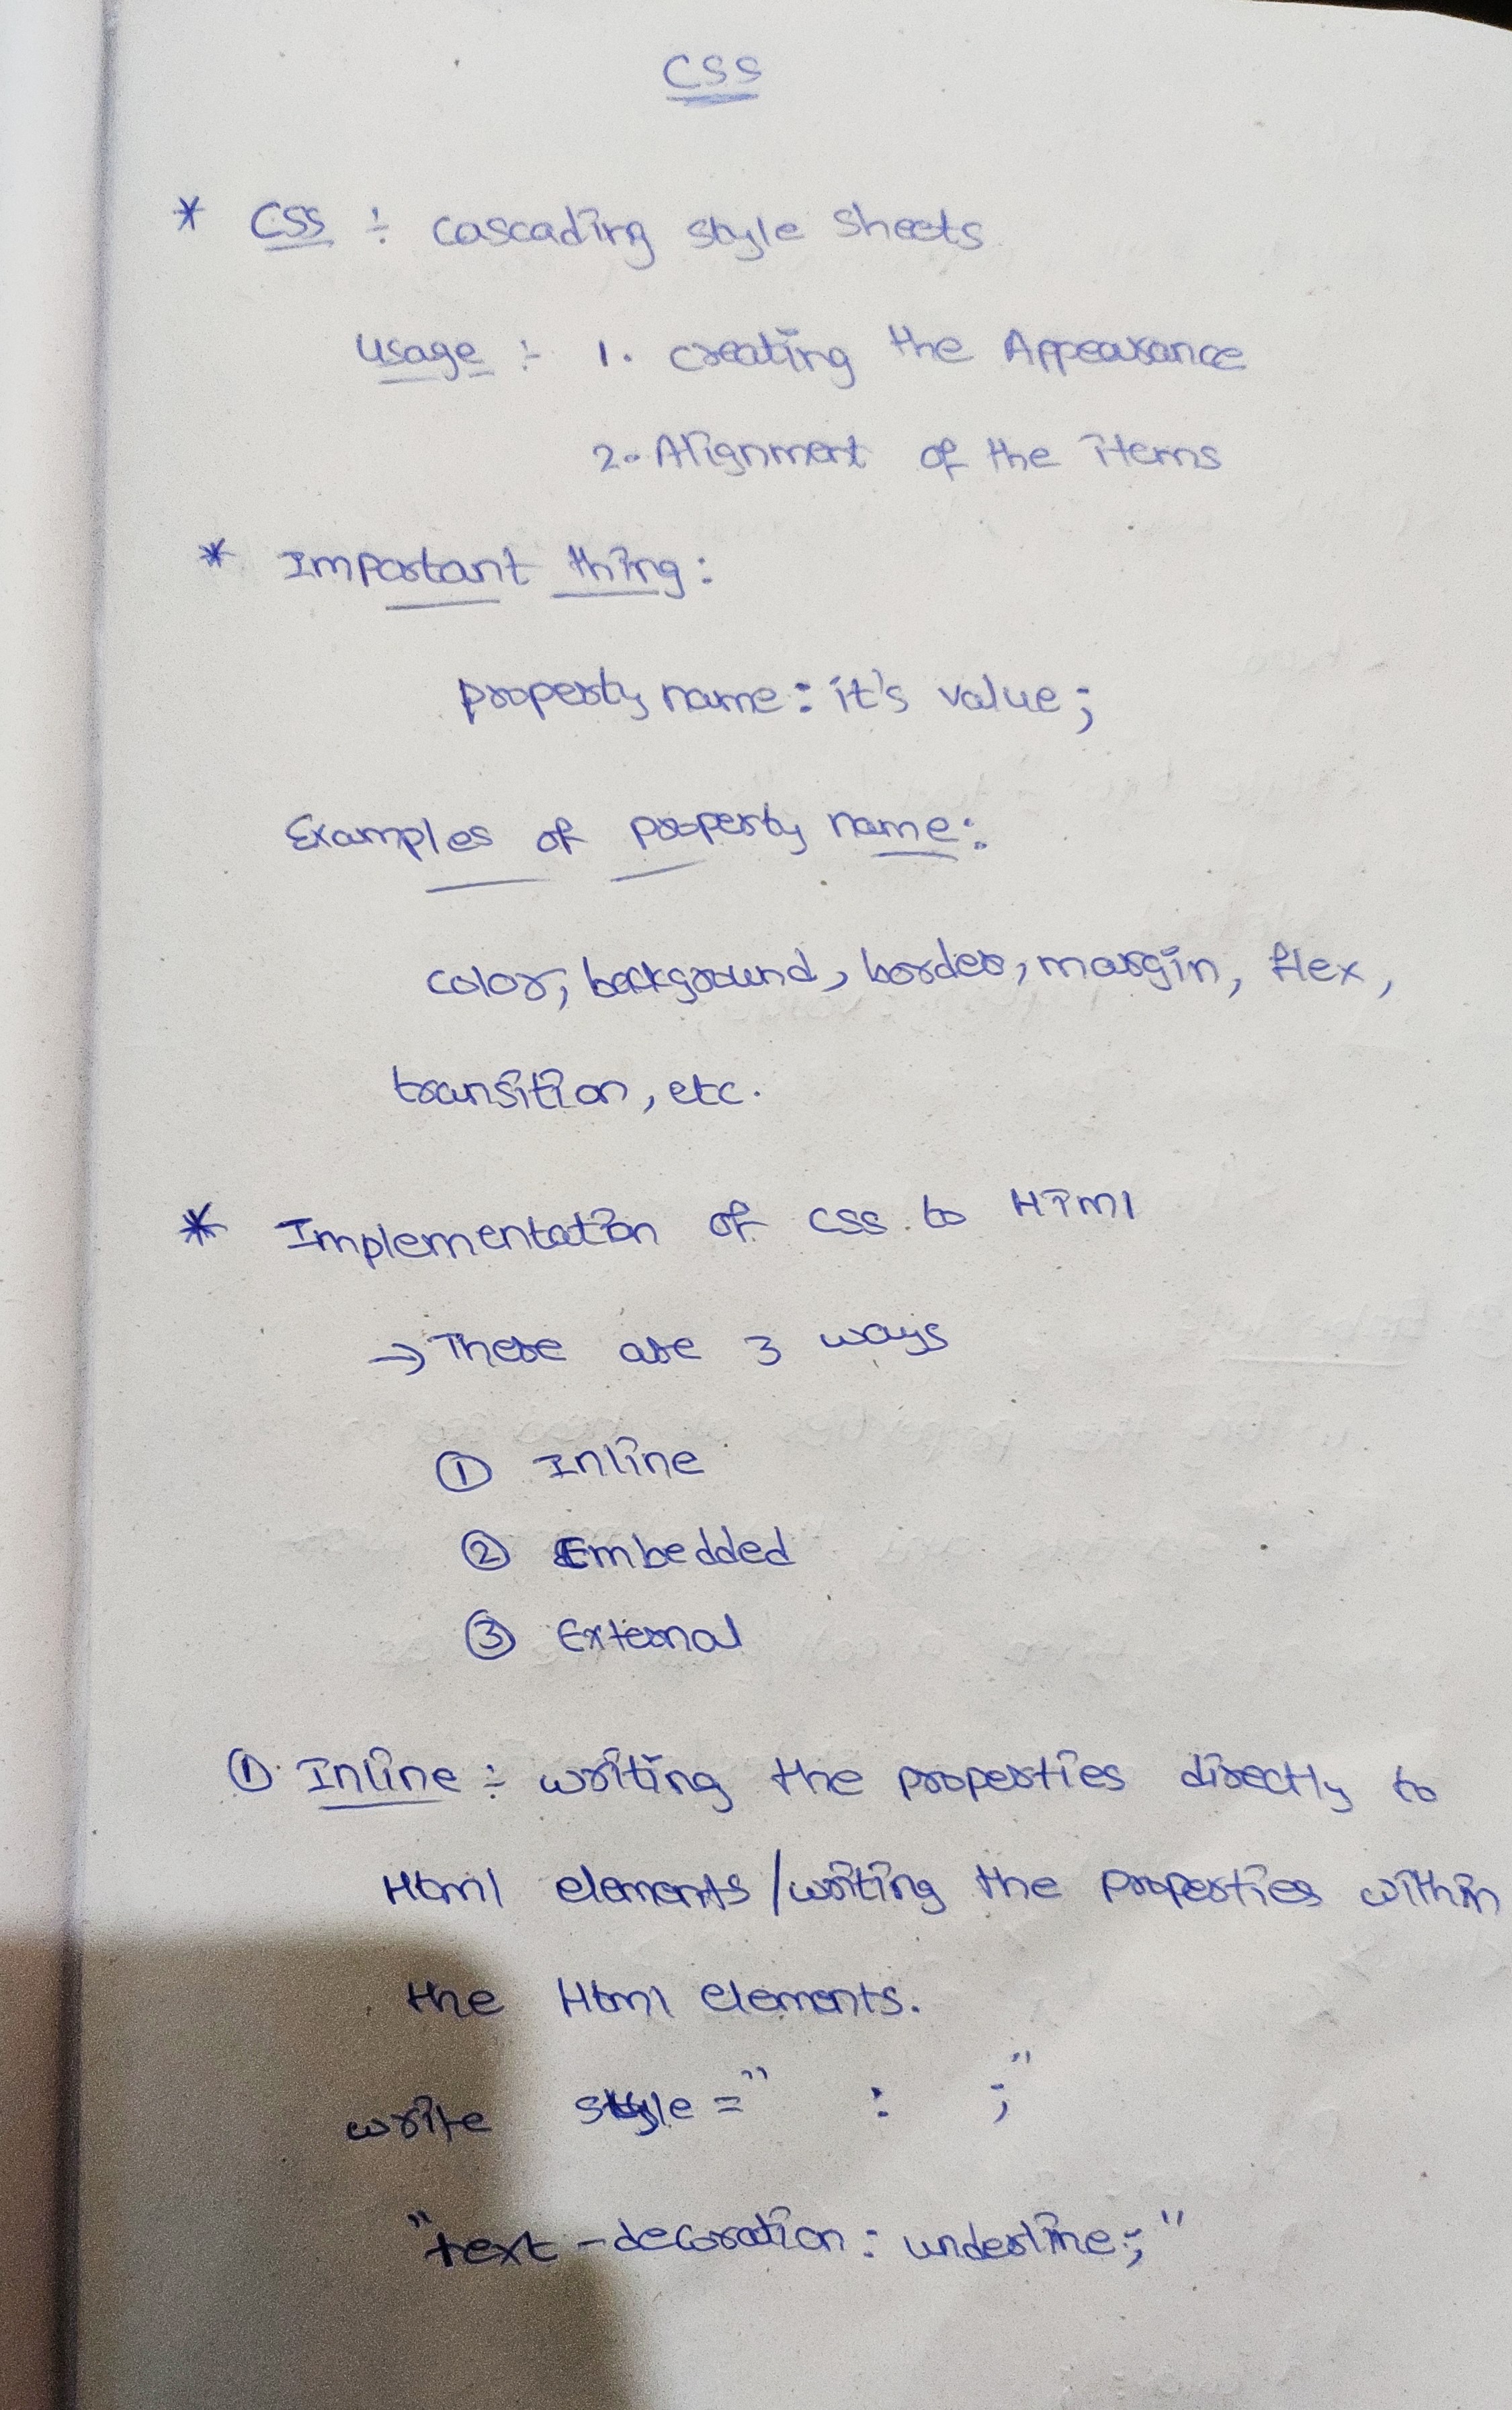 CSS
* CSS :- cascading style sheets
usage :- 1. creating the Appearance
2. Alignment of the items
* Important thing:
property name: it's value;
Examples of property name:
color, background, border, margin, flex,
transition, etc.
* Implementation of css to HTML
→ There are 3 ways
① Inline
② Embedded
③ External
①. Inline :- writing the properties directly to
Html elements/writing the properties within
the Html elements.
write style=" : ;"
"text-decoration: underline;"